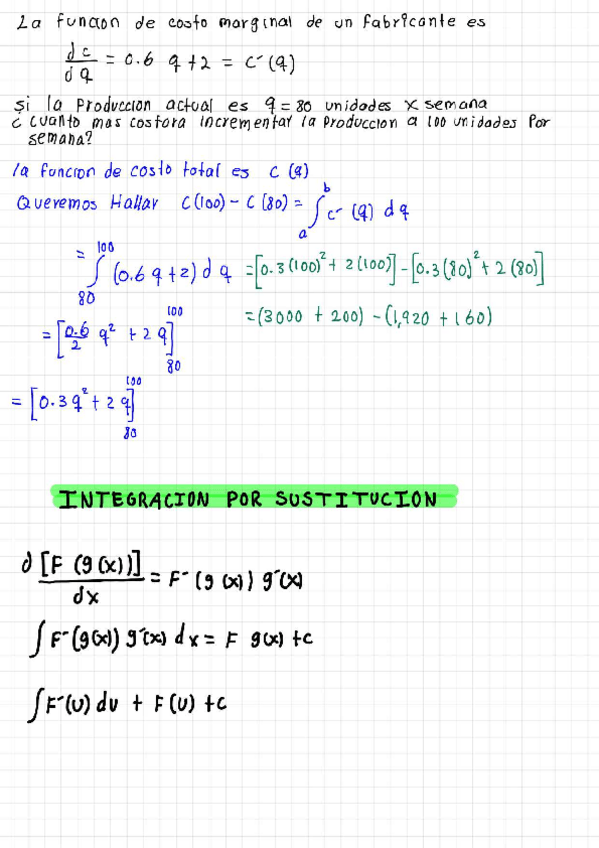 La funcion de costo marginal de un fabricante es
dc/dq = 0.6 q + 2 = c'(q)
si la Produccion actual es q = 80 unidades x semana
¿ cuanto mas costara incrementar la Produccion a 100 unidades Por
semana?
la funcion de costo total es c (q)
Queremos Hallar c(100) - c(80) = ∫_a^b c'(q) dq
= ∫_80^100 (0.6 q + 2) d q = [0.3(100)² + 2(100)] - [0.3(80)² + 2(80)]
= [0.6/2 q² + 2 q]_80^100 = (3000 + 200) - (1,920 + 160)
= [0.3 q² + 2 q]_80^100
INTEGRACION POR SUSTITUCION
d [F (g(x))]/dx = F'(g(x)) g'(x)
∫ F'(g(x)) g'(x) dx = F g(x) + c
∫ F'(u) du + F(u) + c